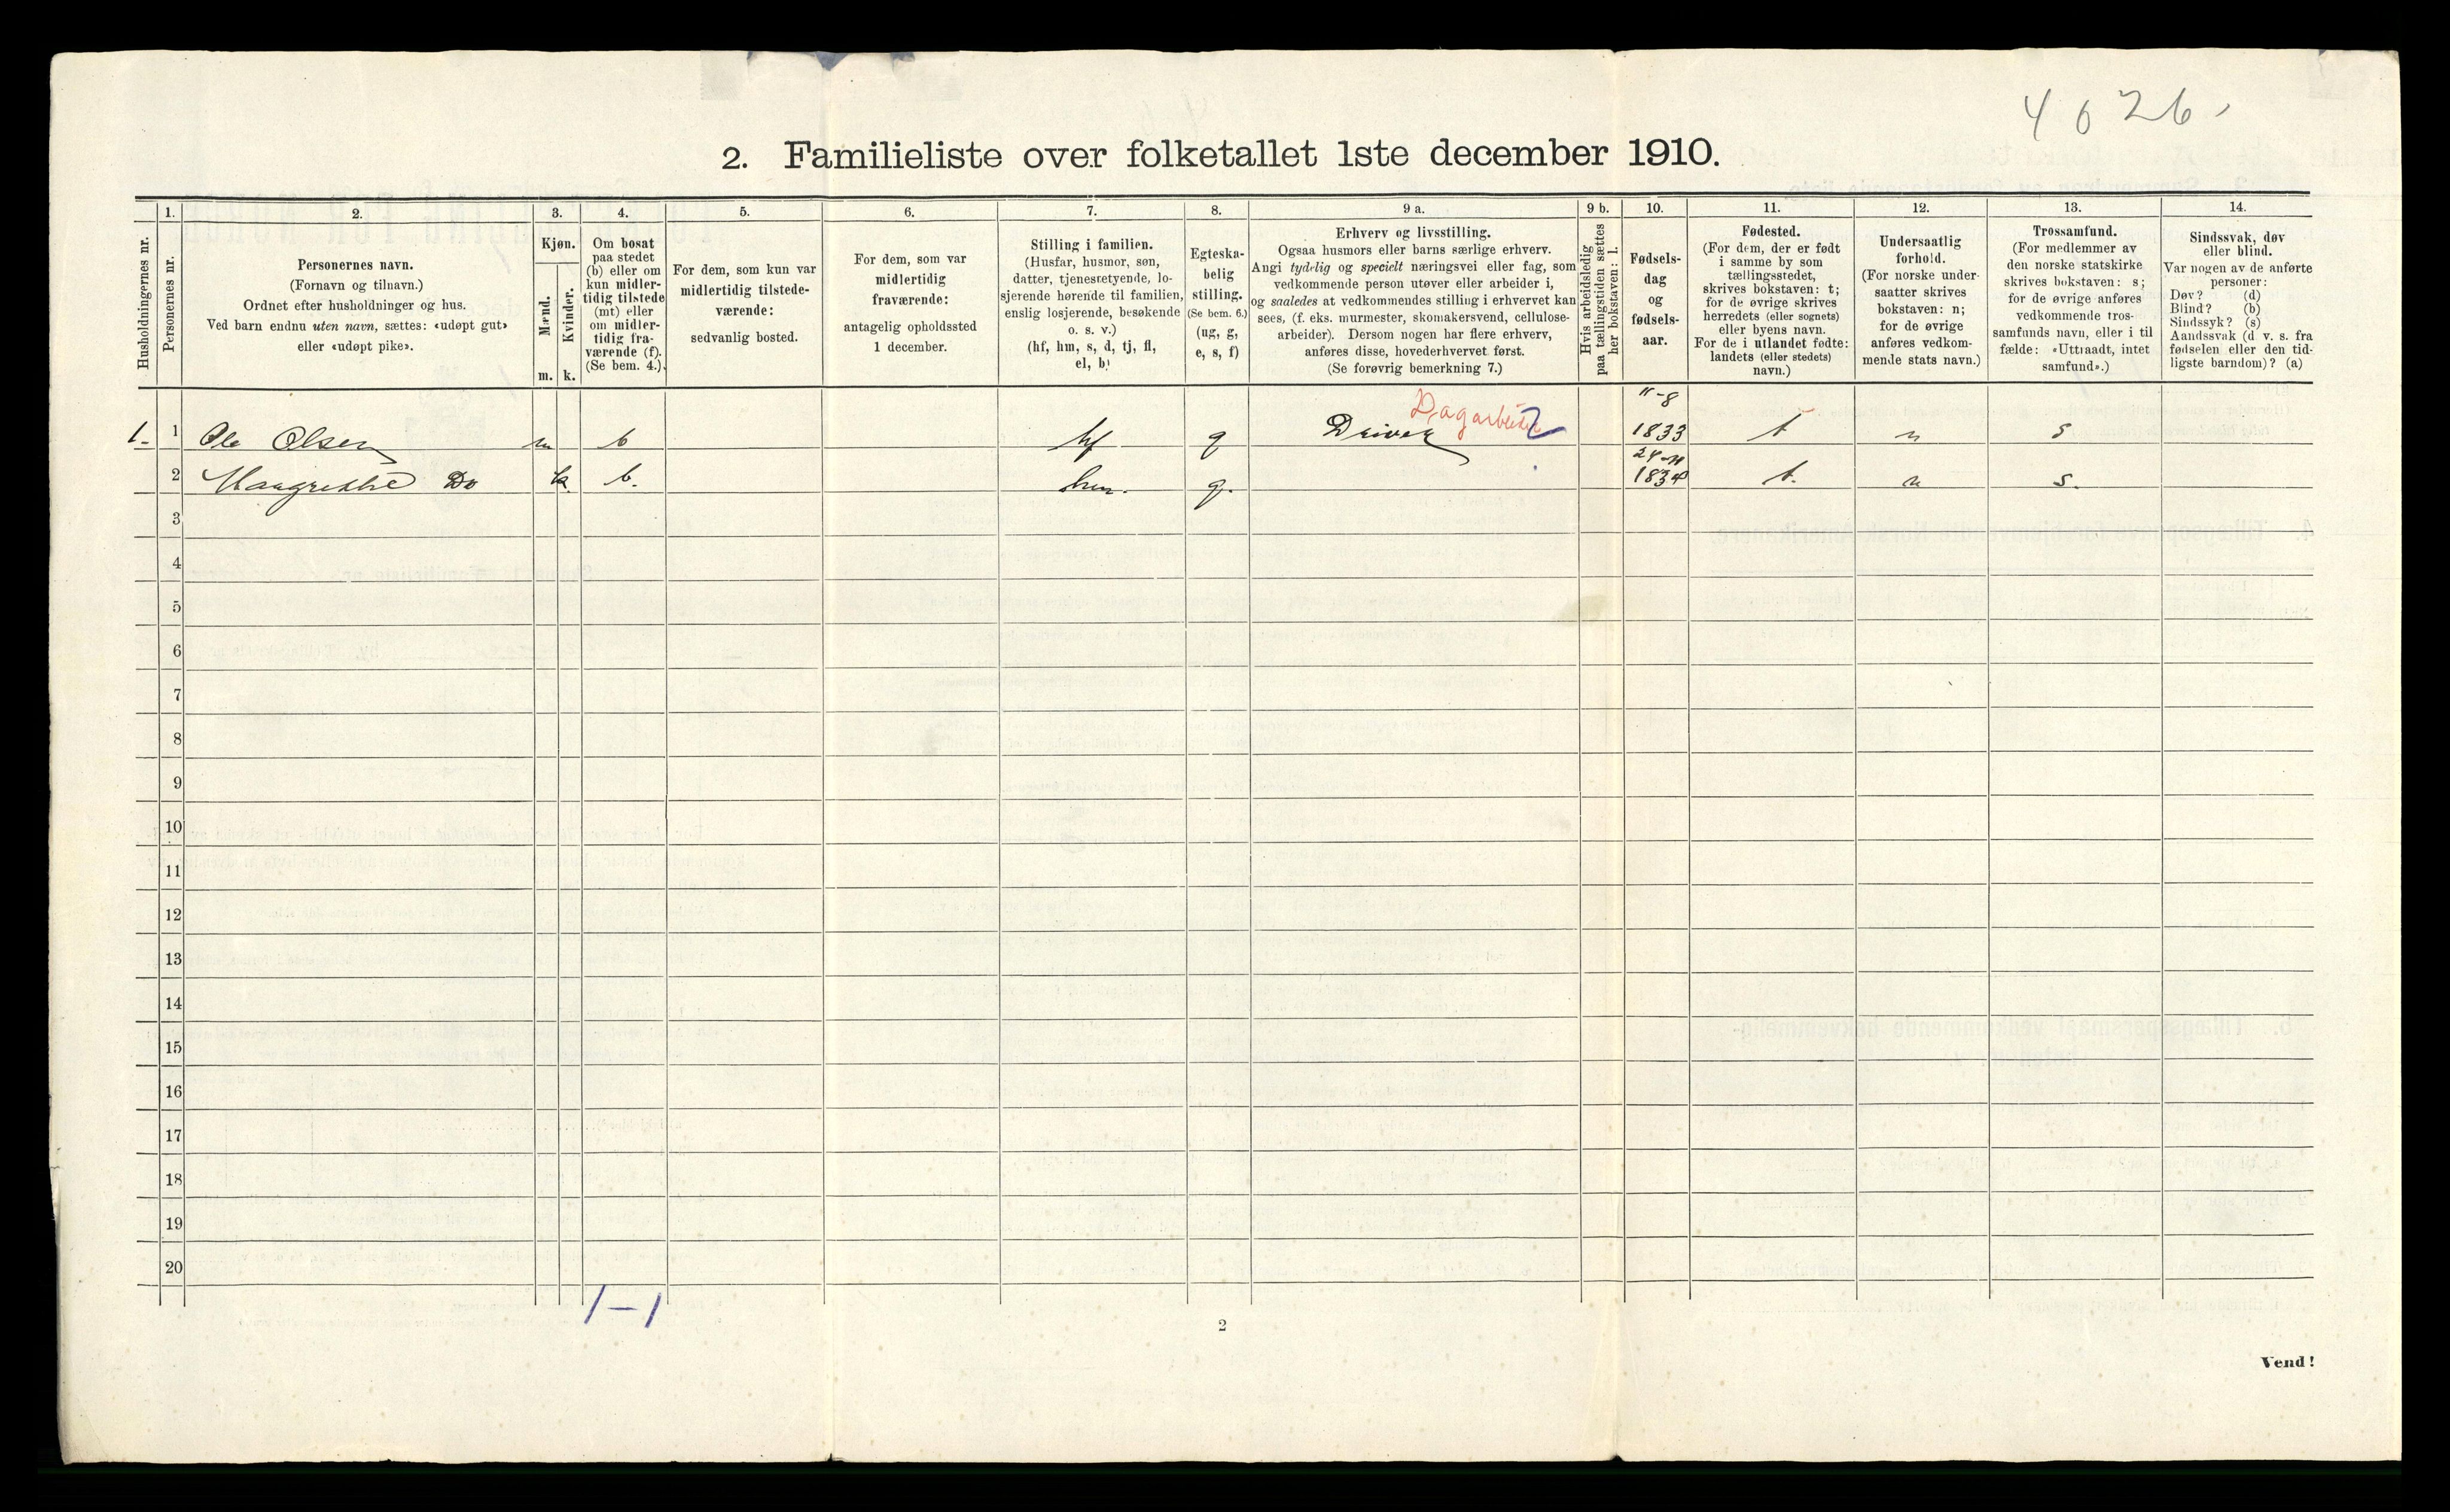 4626.
2. Familieliste over folketallet 1ste december 1910.
Husholdningernes nr.
1.
Personernes nr.
2.
Personernes navn.
(Fornavn og tilnavn.)
Ordnet efter husholdninger og hus.
Ved barn endnu uten navn, sættes: «udøpt gut»
eller «udøpt pike».
3.
Kjøn.
Mænd.
Kvinder.
m. k.
4.
Om bosat
paa stedet
(b) eller om
kun midler-
tidig tilstede
(mt) eller
om midler-
tidig fra-
værende (f).
(Se bem. 4.)
5.
For dem, som kun var
midlertidig tilstede-
værende:
sedvanlig bosted.
6.
For dem, som var
midlertidig
fraværende:
antagelig opholdssted
1 december.
7.
Stilling i familien.
(Husfar, husmor, søn,
datter, tjenestetyende, lo-
sjerende hørende til familien,
enslig losjerende, besøkende
o. s. v.)
(hf, hm, s, d, tj, fl,
el, b)
8.
Egteska-
belig
stilling.
(Se bem. 6.)
(ug, g,
e, s, f)
9 a.
Erhverv og livsstilling.
Ogsaa husmors eller barns særlige erhverv.
Angi tydelig og specielt næringsvei eller fag, som
vedkommende person utøver eller arbeider i,
og saaledes at vedkommendes stilling i erhvervet kan
sees, (f. eks. murmester, skomakersvend, cellulose-
arbeider). Dersom nogen har flere erhverv,
anføres disse, hovederhvervet først.
(Se forøvrig bemerkning 7.)
9 b.
Hvis arbeidsledig
paa tællingstiden sættes
her bokstaven: l.
10.
Fødsels-
dag
og
fødsels-
aar.
11.
Fødested.
(For dem, der er født
i samme by som
tællingsstedet,
skrives bokstaven: t;
for de øvrige skrives
herredets (eller sognets)
eller byens navn.
For de i utlandet fødte:
landets (eller stedets)
navn.)
12.
Undersaatlig
forhold.
(For norske under-
saatter skrives
bokstaven: n;
for de øvrige
anføres vedkom-
mende stats navn.)
13.
Trossamfund.
(For medlemmer av
den norske statskirke
skrives bokstaven: s;
for de øvrige anføres
vedkommende tros-
samfunds navn, eller i til
fælde: «Uttraadt, intet
samfund».)
14.
Sindssvak, døv
eller blind.
Var nogen av de anførte
personer:
Døv? (d)
Blind? (b)
Sindssyk? (s)
Aandssvak (d v. s. fra
fødselen eller den tid-
ligste barndom)? (a)
Dagarbeider
11-8
1. 1 Ole Olsen m b hf g 1833 t n s
2 Do k b. hm. g. 1834 t. n s.
3
4
5
6
7
8
9
10
11
12
13
14
15
16
17
18
19
20
1-1
2
Vend!